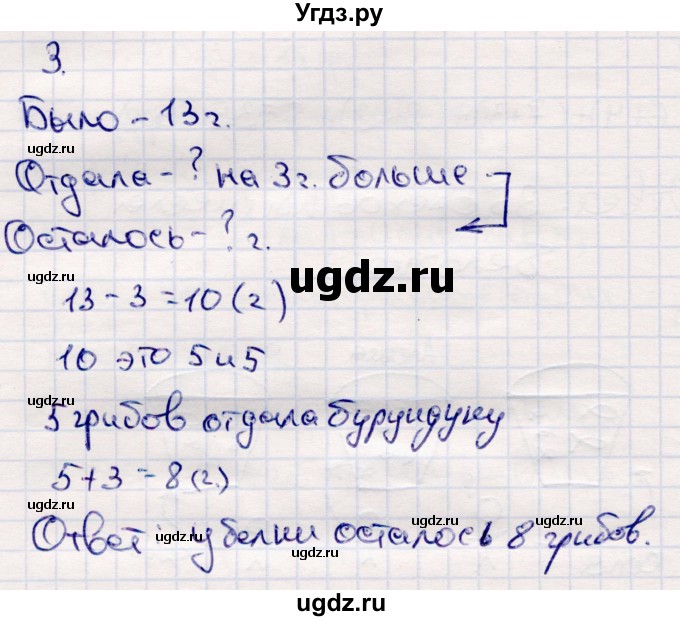 Угдз.ру
3.
Было - 13 г.
ugdz.ru
Отдала - ? на 3 г. больше
ugdz.ru
Осталось - ? г.
ugdz.ru
ugdz.ru
13 - 3 = 10 (г)
10 это 5 и 5
ugdz.ru
5 грибов отдала бурундуку
5 + 3 = 8 (г.)
ugdz.ru
ugdz.ru
Ответ: у белки осталось 8 грибов.
ugdz.ru
ugdz.ru
ugdz.ru